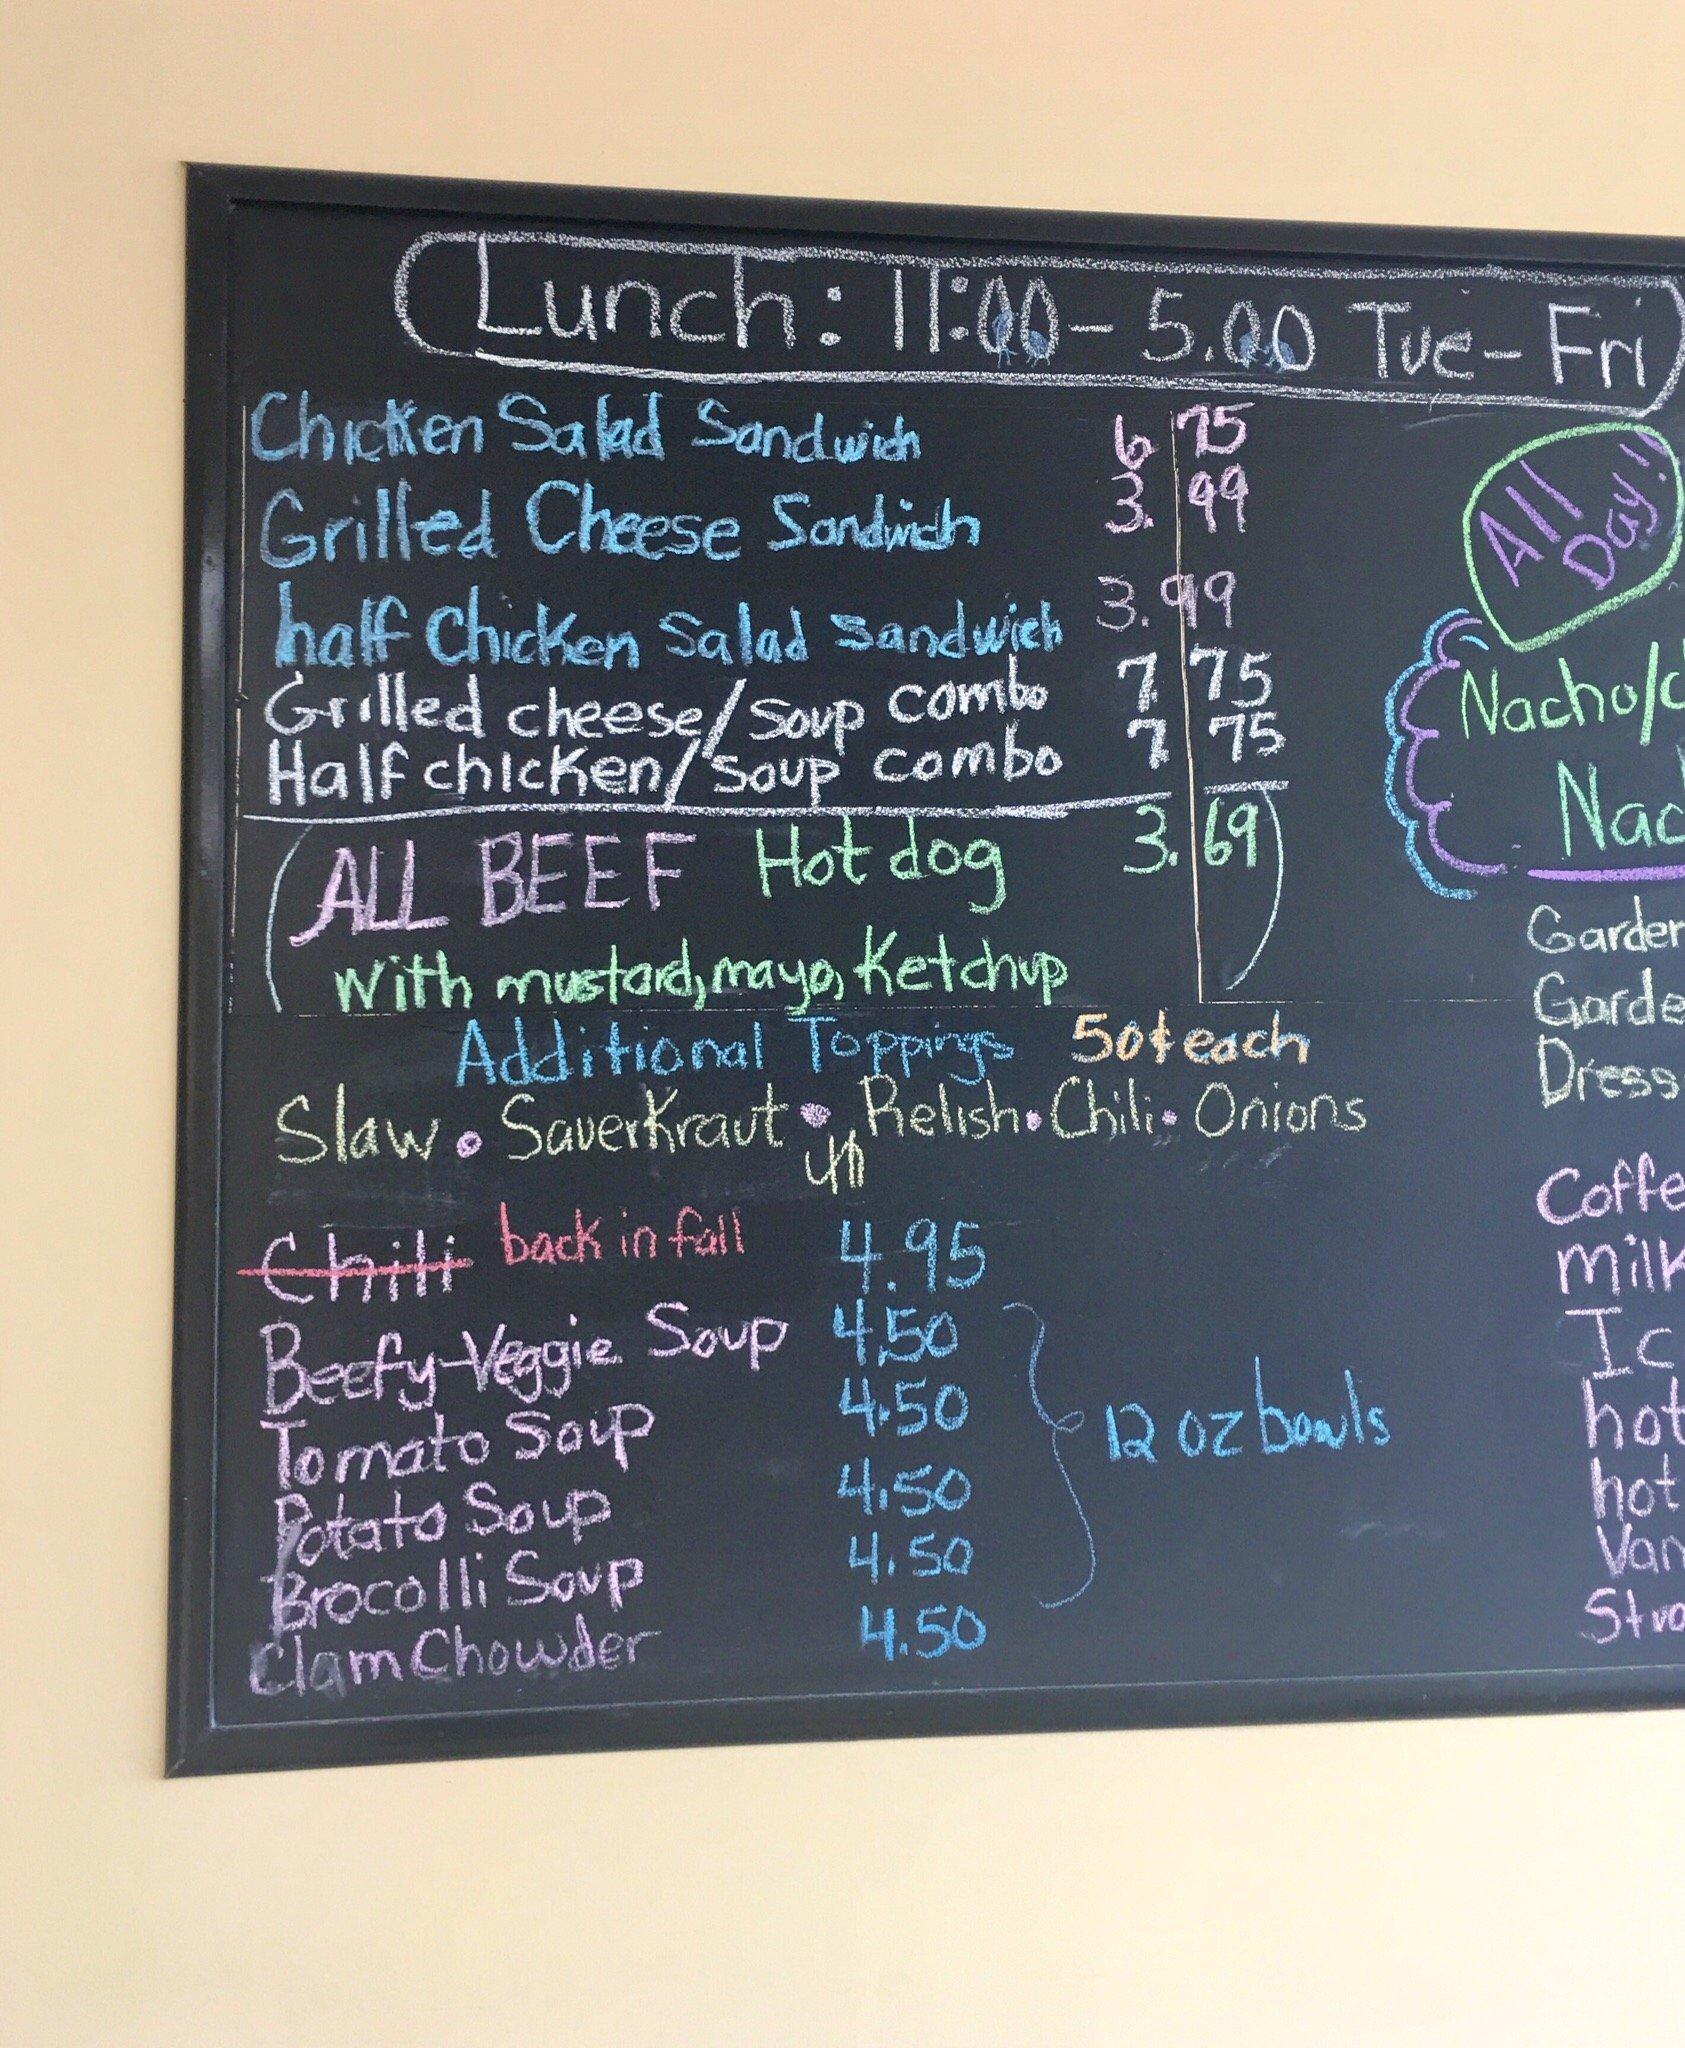 Lunch: 11:00 - 5.00 Tue - Fri
Chicken Salad Sandwich 6 75
Grilled Cheese Sandwich 3. 99
half Chicken Salad Sandwich 3.99
Grilled cheese/soup combo 7 75
Half chicken/soup combo 7 75
ALL BEEF Hot dog 3. 69
with mustard, mayo, Ketchup
Additional Toppings 50¢ each
Slaw • SauerKraut • Relish • Chili • Onions
Chili back in fall 4.95
Beefy-Veggie Soup 4.50
Tomato Soup 4.50
Potato Soup 4.50
Brocolli Soup 4.50
Clam Chowder 4.50
12 oz bowls
All
Day!
Nacho/c
Nac
Garden
Garde
Dress
Coffe
milk
Ic
hot
hot
Van
Stra